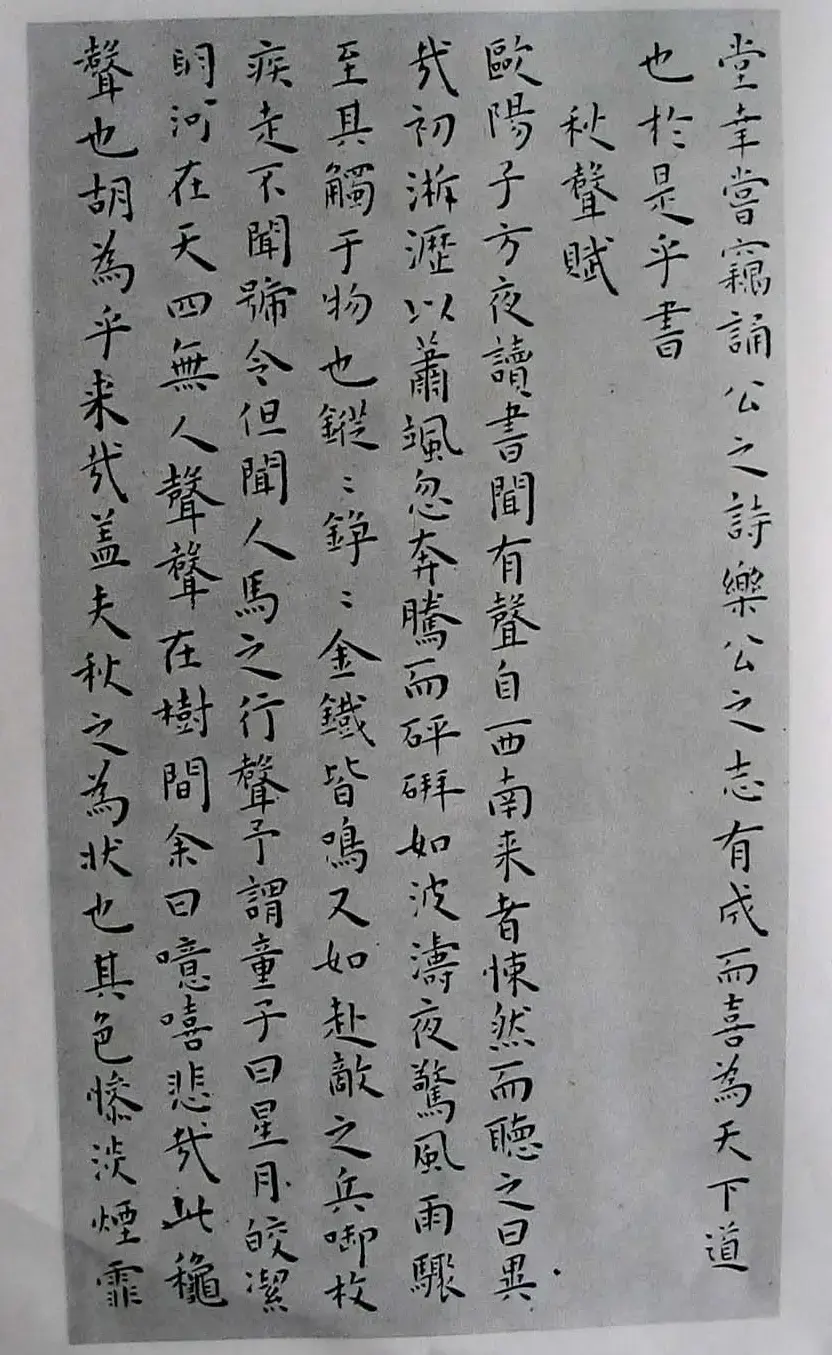 堂幸嘗竊誦公之詩樂公之志有成而喜為天下道
也於是乎書
秋聲賦
歐陽子方夜讀書聞有聲自西南来者悚然而聽之曰異
哉初淅瀝以蕭颯忽奔騰而砰如波濤夜驚風雨驟
至其觸于物也鏦〻錚〻金鐵皆鳴又如赴敵之兵啣枚
疾走不聞號令但聞人馬之行聲予謂童子曰星月皎潔
明河在天四無人聲聲在樹間余曰噫嘻悲哉此龝
聲也胡為乎来哉盖夫秋之為状也其色慘淡煙霏